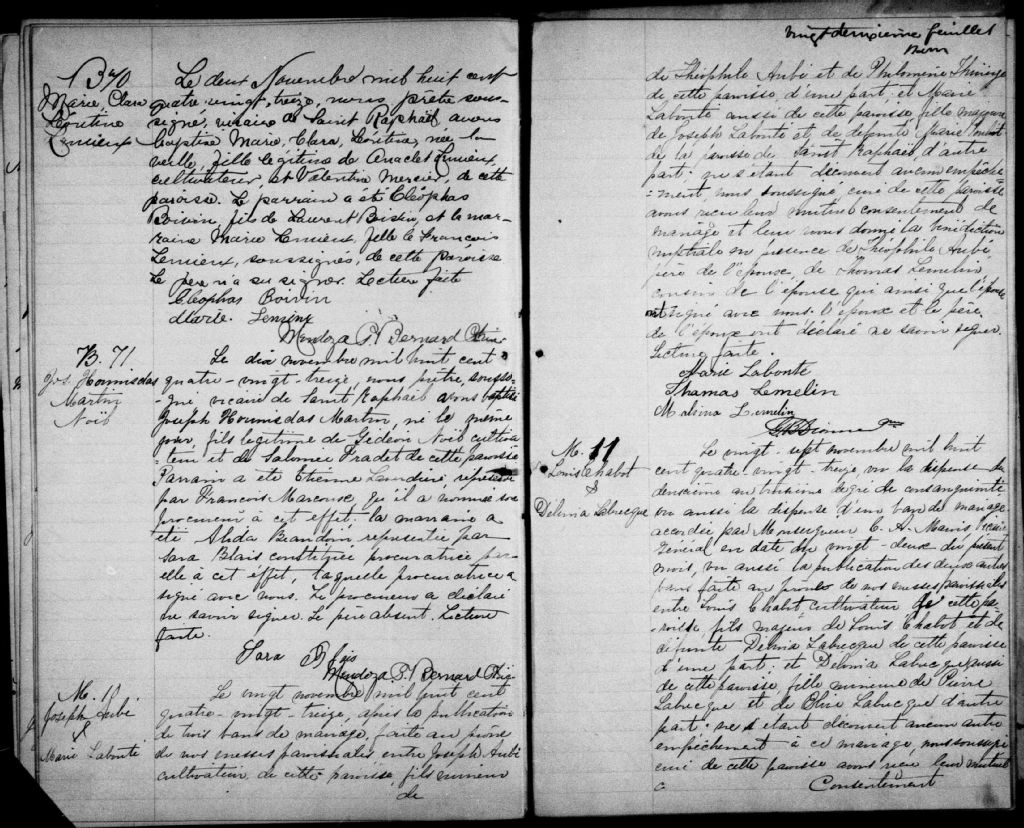 B 70
Marie, Clara
Léontine
Lemieux
Le deux Novembre mil huit cent
quatre vingt, treize, nous, prêtre sous-
signé, vicaire de Saint Raphaël avons
baptisé Marie, Clara, née la
veille, fille légitime de Anaclet Lemieux,
cultivateur, et Valentine Mercier, de cette
paroisse. Le parrain a été Cléophas
Boivin, fils de Laurent Boivin, et la mar-
raine Marie Lemieux, fille de François
Lemieux, soussignés, de cette paroisse
Le père n'a su signer. Lecture faite
Cléophas Boivin
Marie. Lemieux
Mendoza P. Bernard Ptre
B. 71
Jos. Hormisdas
Martin
Noël
Le dix novembre mil huit cent
quatre-vingt-treize, nous prêtre, soussi-
gné vicaire de Saint Raphaël avons baptisé
Joseph Hormisdas Martin, né le même
jour, fils légitime de Gédéon Noël cultiva-
teur et de Salomée Pradet de cette paroisse
Parrain a été Etienne représenté
par Francois Marcoux qu'il a nommé son
procureur à cet effet: la marraine a
été Alida Beaudoin représentée par
Sara Blais constituée procuratrice par
elle à cet effet, laquelle procuratrice a
signé avec nous. Le procureur a déclaré
ne savoir signer. Le père absent. Lecture
faite.
Sara Blais
Mendoza P. Bernard Ptre
M. 10
Joseph Aubé
&
Marie Labonté
Le vingt novembre mil huit cent
quatre-vingt-treize, après la publication
de trois bans de mariage, faite au prône
de nos messes paroissiales entre Joseph Aubé
cultivateur, de cette paroisse, fils mineur
de
vingt deuxième feuillet
de Théophile Aubé et de Philomène
de cette paroisse, d'une part, et Marie
Labonté aussi de cette paroisse fille majeure
de Joseph Labonté et de défunte Marie
de la paroisse de Saint Raphaël, d'autre
part: ne s'étant découvert aucun empêche-
-ment, nous soussigné, curé de cette paroisse
avons reçu leur mutuel consentement de
mariage et leur avons donné la bénédiction
nuptiale en présence de Théophile Aubé
père de l'époux, de Thomas Lemelin
cousin de l'épouse qui ainsi que l'épouse
ont signé avec nous. l'époux et le père
de l'époux ont déclaré ne savoir signer.
Lecture faite.
Marie Labonté
Thomas Lemelin
Malvina Lemelin
Dionne Ptre
M. 11
Louis Chabot
&
Délvina Labrecque
Le vingt-sept novembre mil huit
cent quatre-vingt-treize, vu la dispense du
deuxième au troisième degré de consanguinité
vu aussi la dispense d'un ban de mariage
accordée par Monseigneur C. A. Marois Vicaire
Général en date du vingt-deux du présent
mois, vu aussi la publication des deux autres
bans faite au prône de nos messes paroissiales
entre Louis Chabot cultivateur de cette pa-
roisse, fils majeur de Louis Chabot et de
défunte Délvina Labrecque de cette paroisse
d'une part: et Délvina Labrecque aussi
de cette paroisse, fille mineure de Pierre
Labrecque et de Olive Labrecque d'autre
part: ne s'étant découvert aucun autre
empêchement à ce mariage, nous soussigné
curé de cette paroisse avons reçu leur mutuel
Consentement